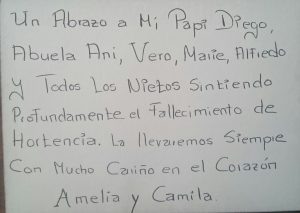 Un Abrazo a Mi Papi Diego,
Abuela Ani, Vero, Marie, Alfredo
y Todos Los Nietos Sintiendo
Profundamente el Fallecimiento de
Hortencia. La llevaremos Siempre
Con Mucho Cariño en el Corazón
Amelia y Camila.